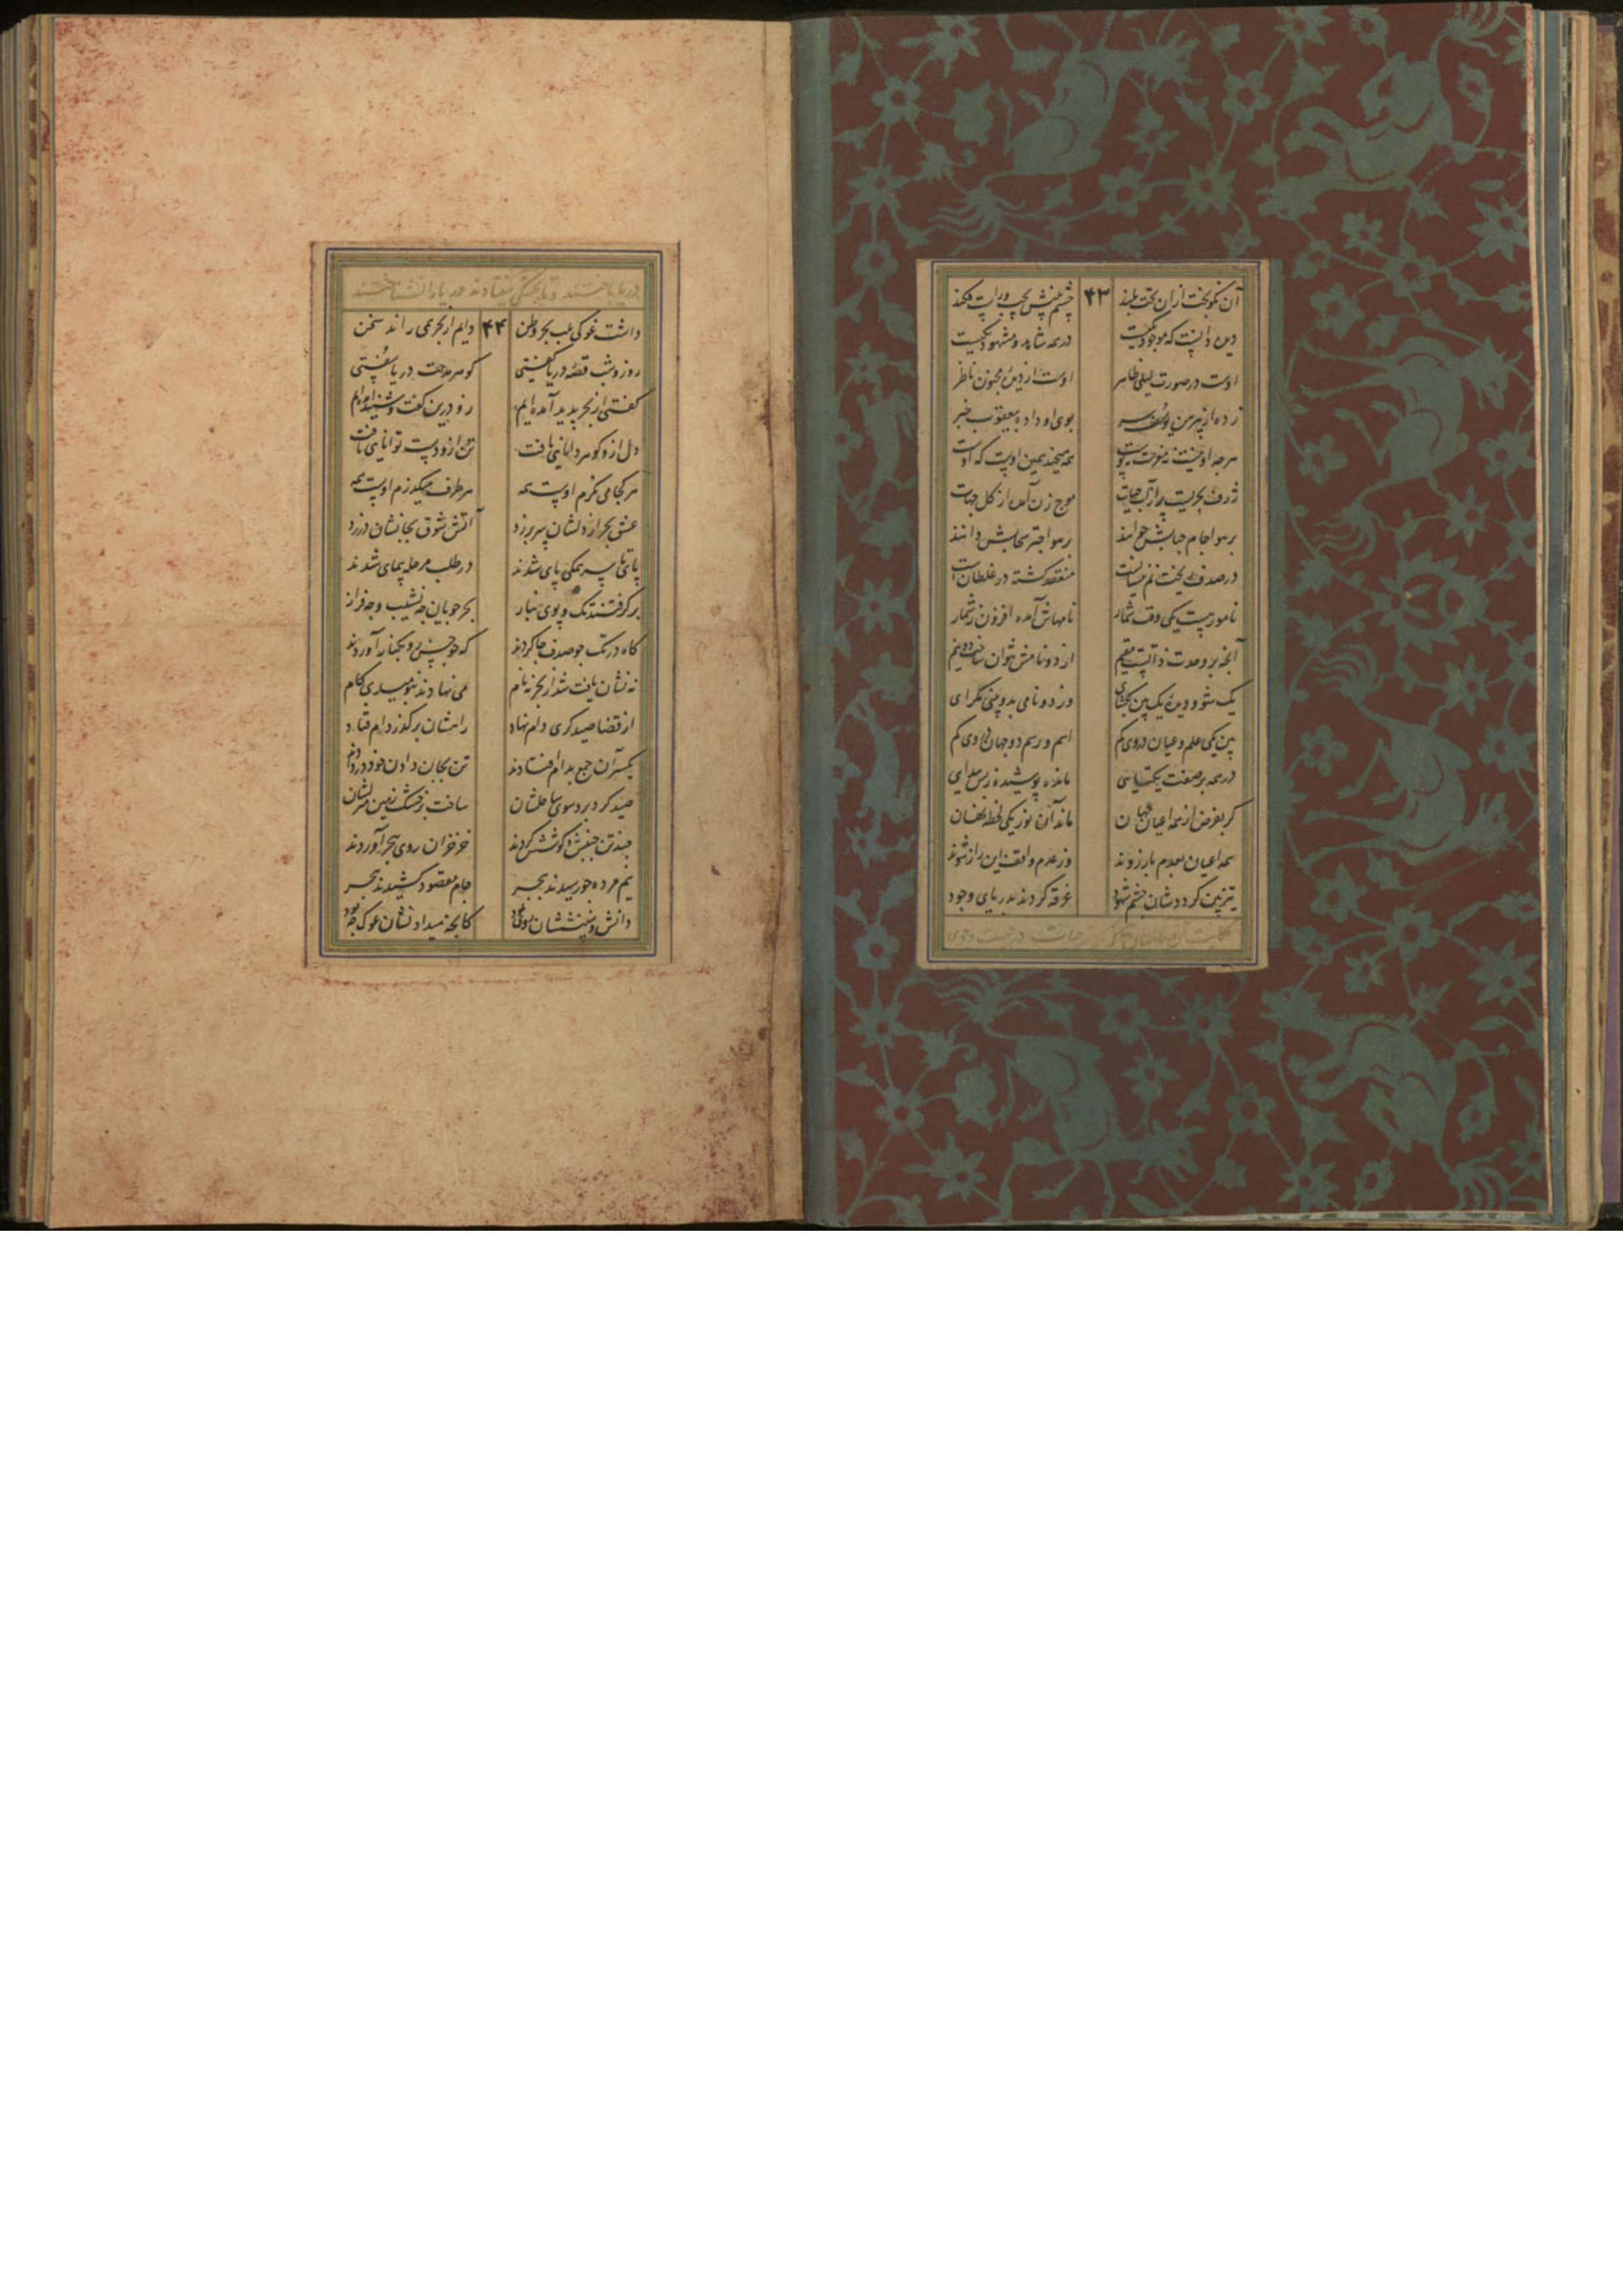 آن نکوبخت ازان تخت بلند ۴۳ چشم بینش بچپ و راست فکند
دید و دانست که موجود یکیست در همه شاهد و مشهود یکیست
اوست در صورت لیلی ظاهر اوست از دیده مجنون ناظر
زده از پیرهن یوسف سر بوی او داده بیعقوب خبر
هرچه او نیست نه مغزست نه پوست همه هیچند همین اوست که اوست
ژرف بحریست پر از آب حیات موج زن آمده از کل جهات
بر هوا جام حبابش خوانند بر هوا چتر سحابش دانند
در صدف ریخت نم نیسانست منعقد کشته در غلطانست
نامور یست یکی وقت شمار نامهاش آمده افزون ز شمار
آنچه بر وحدت ذاتست مقیم از دو نامش نتوان ساخت دو نیم
یک شو و دیده یک بین بگشای وز دو نامی بدو بینی مگرای
بین یکی علم و عیان در وی گم اسم و رسم دو جهان در وی گم
در همه بر صفت یکتایی مانده پوشیده ز بس پیدایی
گر بفرض از همه اعیان جهان ماند آن نور یکی لحظه نهان
همه اعیان بعدم باز روند وز عدم واقف این راز شوند
تیزبین گردد شان چشم شهود غرقه گردند بدریای وجود
حکایت آن ماهیان که حیات در جست و جوی
دریا یافتند و تا بخشکی نیفتادند دریا را نشناختند
داشت غوکی بلب بحر وطن ۴۴ دایم از بحر همی راند سخن
روز و شب قصه دریا گفتی گوهر مدحت دریا سفتی
گفتی از بحر پدید آمده ایم زو درین گفت و شنید آمده ایم
دل ازو گوهر دانایی یافت تن ازو دست توانایی یافت
هر کجا می نگرم اوست همه هر طرف میگذرم اوست همه
عشق بحر از دلشان سر بر زد آتش شوق بجانشان در زد
پای تا سر همگی پای شدند در طلب مرحله پیمای شدند
بر گرفتند تک و پوی نیاز بحر جویان چه نشیب و چه فراز
گاه در تک چو صدف جا کردند گه چو خس رو بکنار آوردند
نه نشان یافت شد از بحر نه نام می نهادند بنومیدی گام
از قضا صیدگری دام نهاد راهشان برگذر دام فتاد
یکسر آن جمع بدام افتادند تن بجان دادن خود در دادند
صید گر برد سوی ساحلشان ساخت بر خشک زمین منزلشان
چند تن جنبش و کوشش کردند خزخزان روی ببحر آوردند
نیم مرده چو رسیدند ببحر جام مقصود کشیدند ببحر
دانش و بینششان روی نمود کانچه میداد نشان غوک چه بود